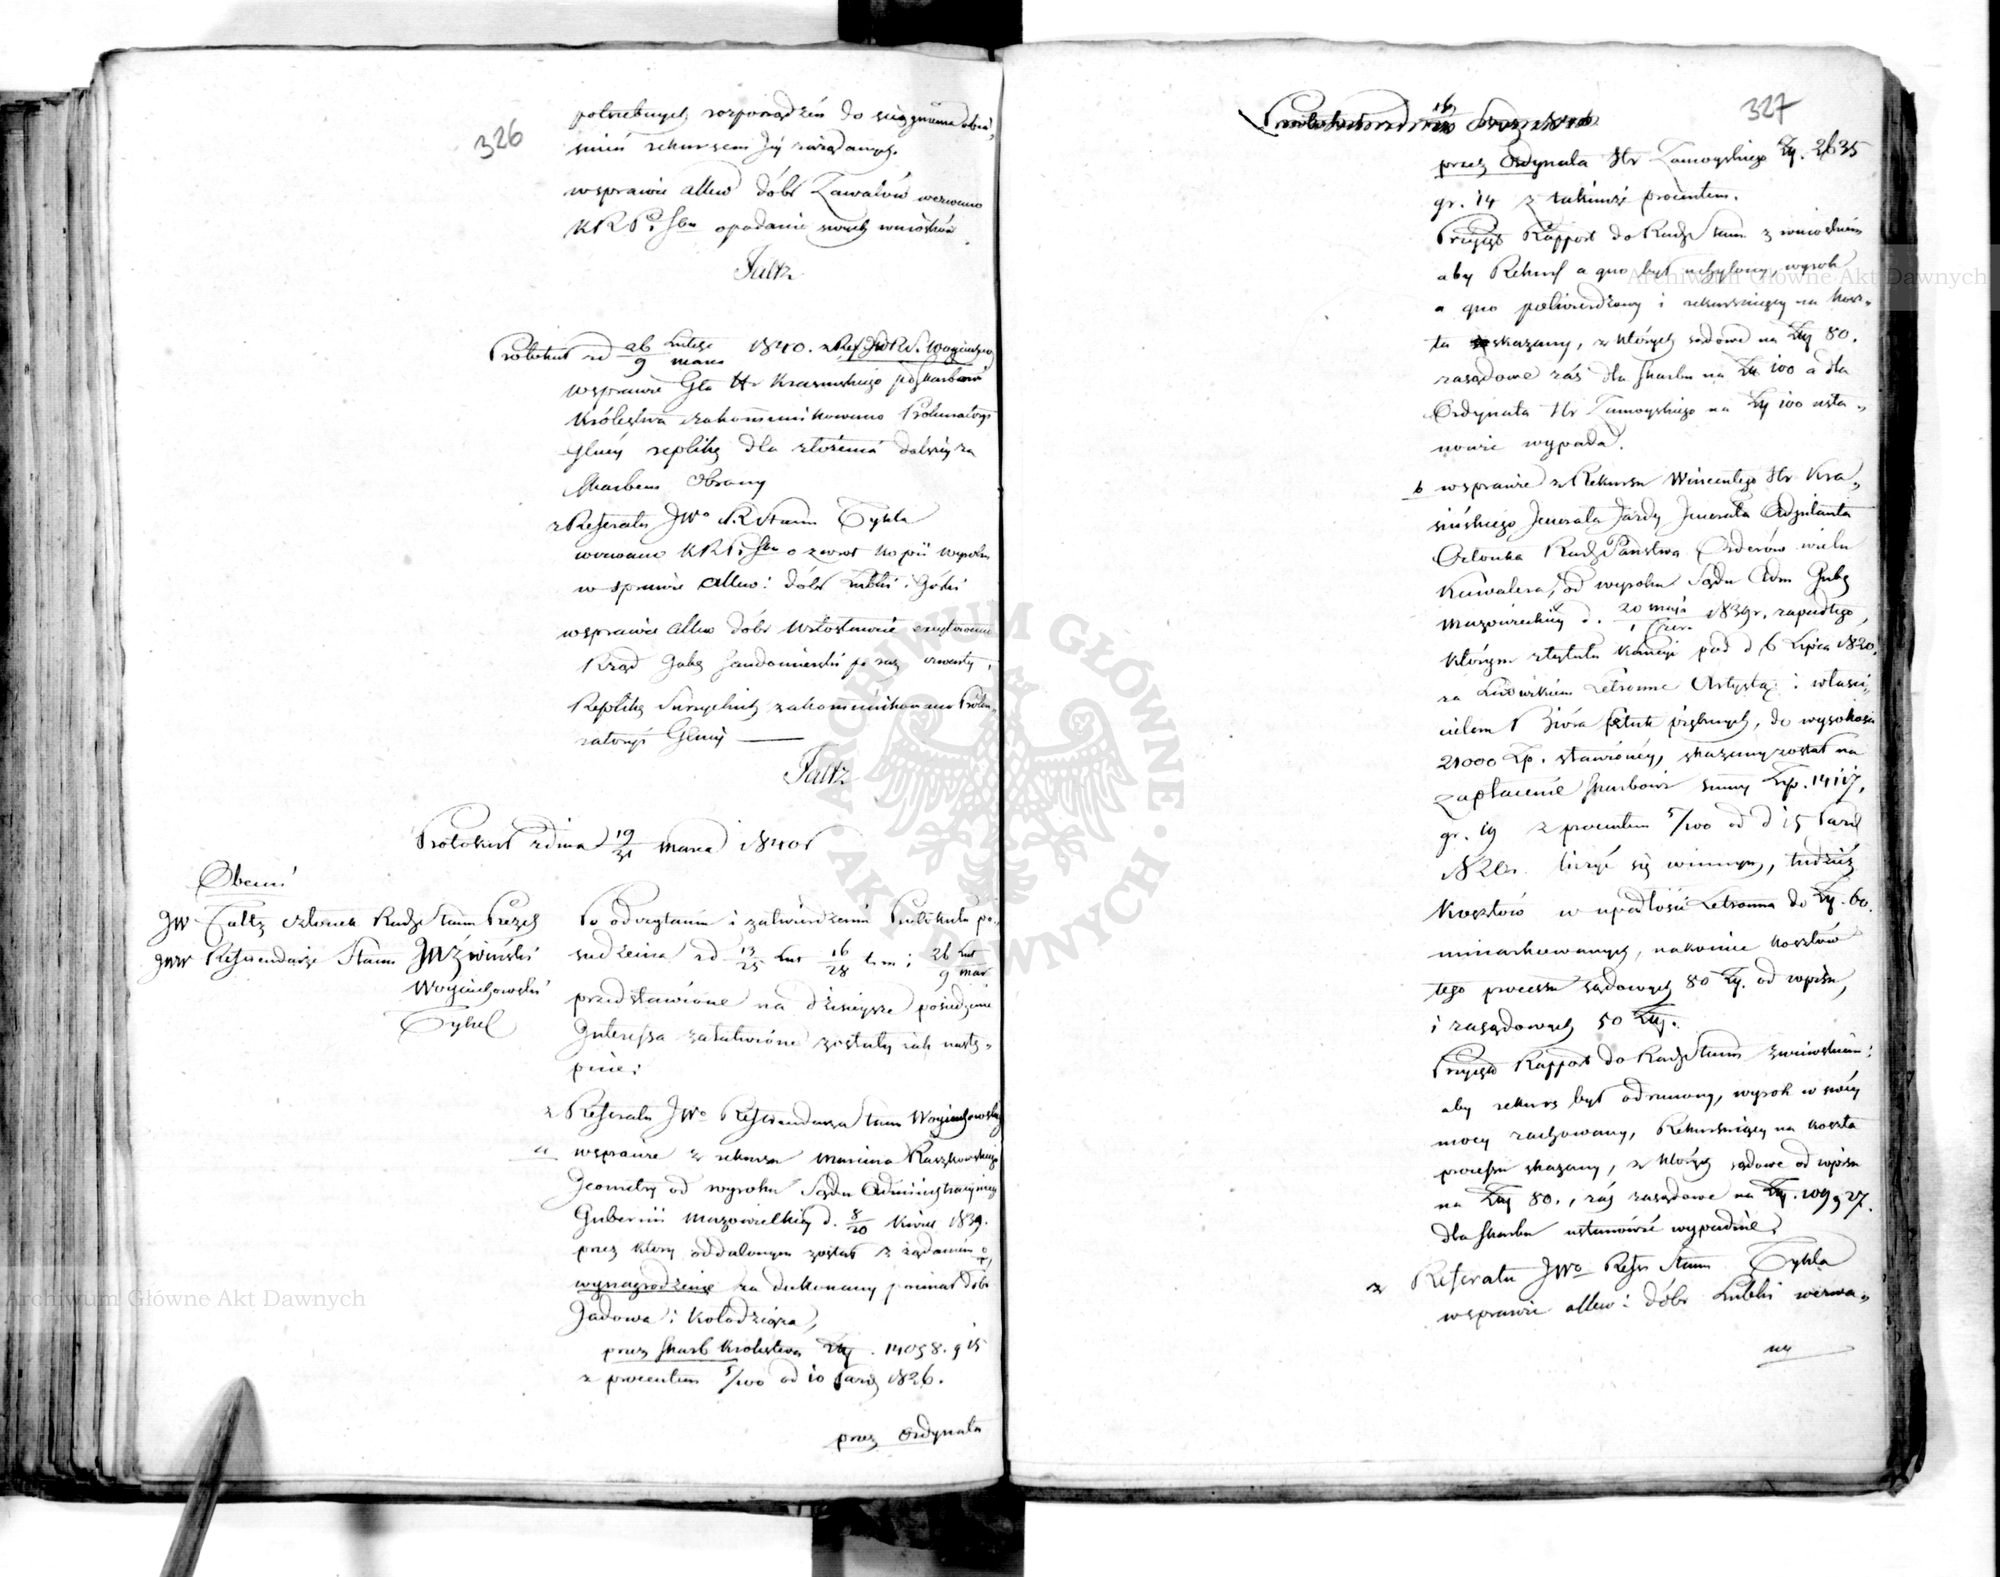 326
potrzebnych rozporządzeń do ściągnienia obia-
śnień rekursem Jej zażądanych.
w sprawie allew dóbr Zawałów wezwano
KRPiSbu o podanie swych wniosków
Faltz
Protokuł zd 26 Lutego / 9 marca 1840. z Ref JW R.S. Wojciechow
w sprawie Gła Hr Krasińskiego ze Skarbem
Królestwa zakommunikowano Prokuratoryi
Glnéj replikę dla złożenia dalszej za
Skarbem Obrony
z Referatu JWo RStanu Tykla
wezwano KRPiSbu o zwrot kopii wyroku
w sprawie allew: dóbr Lubki i Górki
w sprawie allew dóbr Włostowice
Rząd Gubq Sandomierski po raz czwarty
Replikę zakommunikowano Proku-
ratoryi Glnéj
Faltz
Protokuł z dnia 19/31 marca 1840r
Obecni
JW Faltz członek Rady Stanu Prezes
JWW Referendarze Stanu Jaźwiński
Wojciechowski
Tykel
Po odczytaniu i zatwierdzeniu Protokułu po-
siedzenia zd 13/25 Lut 16/28 t.m i 26 Lut / 9 mar
przedstawione na dzisiejsze posiedzenie
Interessa załatwione zostały jak nastę-
puie:
z Referatu JWo Referendarza Stanu Wojciechowskiego
a w sprawie z rekursu Marcina Raszkowskiego
Jeometry od wyroku Sądu Administracyjnego
Gubernii Mazowieckiej d. 8/20 Kwiet 1839.
przez który oddalonym został z żądaniem o
wynagrodzenie za dokonany pomiar dóbr
Jadowa i Kołodziąża,
przez Skarb Królestwa Złp. 14058. g 15
z procentem 5/100 od 10 Paźdz 1826.
przez Ordynata
327
przez Ordynata Hr Zamoyskiego Złp. 2635
gr. 14 z takimże procentem.
Przyjęto Rapport do Rady Stanu z wnioskiem
aby Rekurs a quo był uchylony, wyrok
a quo potwierdzony i rekursujący na kosz-
ta skazany, z których sądowe na Złp 80.
zasądowe zaś dla Skarbu na Zł 100 a dla
Ordynata Hr Zamoyskiego na Złp 100 usta-
nowić wypada.
b w sprawie z Rekursu Wincentego Hr Kra-
sińskiego Jenerała Jazdy Jenerała Adjutanta
Członka Rady Państwa Orderów wielu
Kawalera, od wyroku Sądu Adm Gubq
Mazowieckiéj d. 20 maja / 1 Czer. 1839r. zapadłego,
którym z tytułu kaucji pod d 6 Lipca 1820.
za Ludwikiem Letronne Artystą i właści-
cielem Bióra Sztuk pięknych, do wysokości
21000 Złp. stawionéy, skazany został na
zapłacenie Skarbowi summy Złp. 14117,
gr. 19 z procentem 5/100 od d 15 Paźd
182 liczyć się winnym, tudzież
Kosztów w upadłości Letronna do Złp. 60.
miarkowanych, nakoniec kosztów
tego processu sądowych 80 Złp. od wpisu,
i zasądowych 50 Złp.
Przyjęto Rapport do Rady Stanu z wnioskiem:
aby rekurs był odrzucony, wyrok w swéy
mocy zachowany, Rekursujący na koszta
processu skazany, z których sądowe od wpisu
na Złp 80., zaś zasądowe na Złp. 109, 27.
dla Skarbu ustanowić wypadnie.
z Referatu JWo Refer Stanu Tykla
w sprawie allew: dóbr Lubki wezwa-
ny
Archiwum Główne Akt Dawnych
Archiwum Główne Akt Dawnych
ARCHIWUM GŁÓWNE · AKT DAWNYCH ·